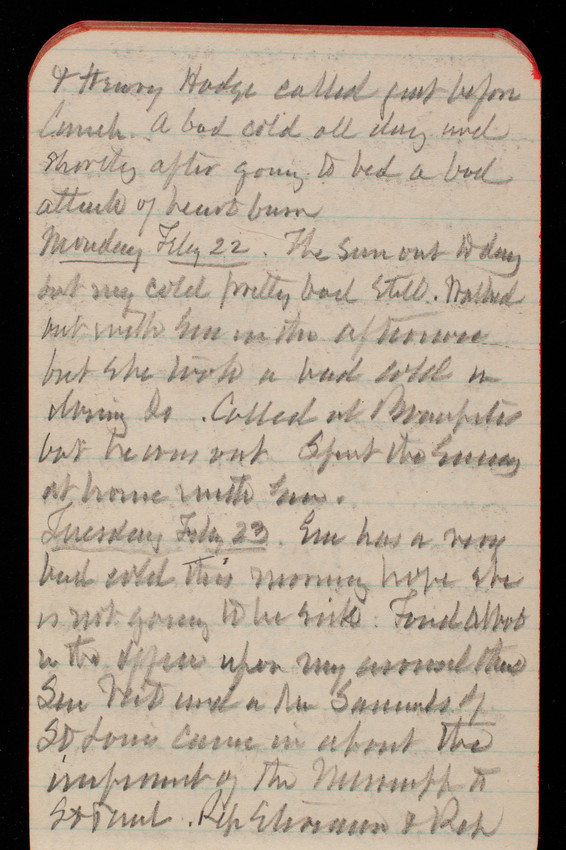 & Henry Hodge called just before
lunch. A bad cold all day and
shortly after going to bed a bad
attack of heart burn
Monday Feby 22. The sun out to day
but my cold pretty bad still. Walked
out with Em in the afternoon
but she took a bad cold in
doing so. Called at
but he was out. Spent the Evening
at home with Em.
Tuesday Feby 23. Em has a very
bad cold this morning hope she
is not going to be sick. Found Abbot
in the office upon my arrival there
Sen and a Mr Samuels of
St Louis came in about the
of the Mississipp to
St Paul. Rep & Rep